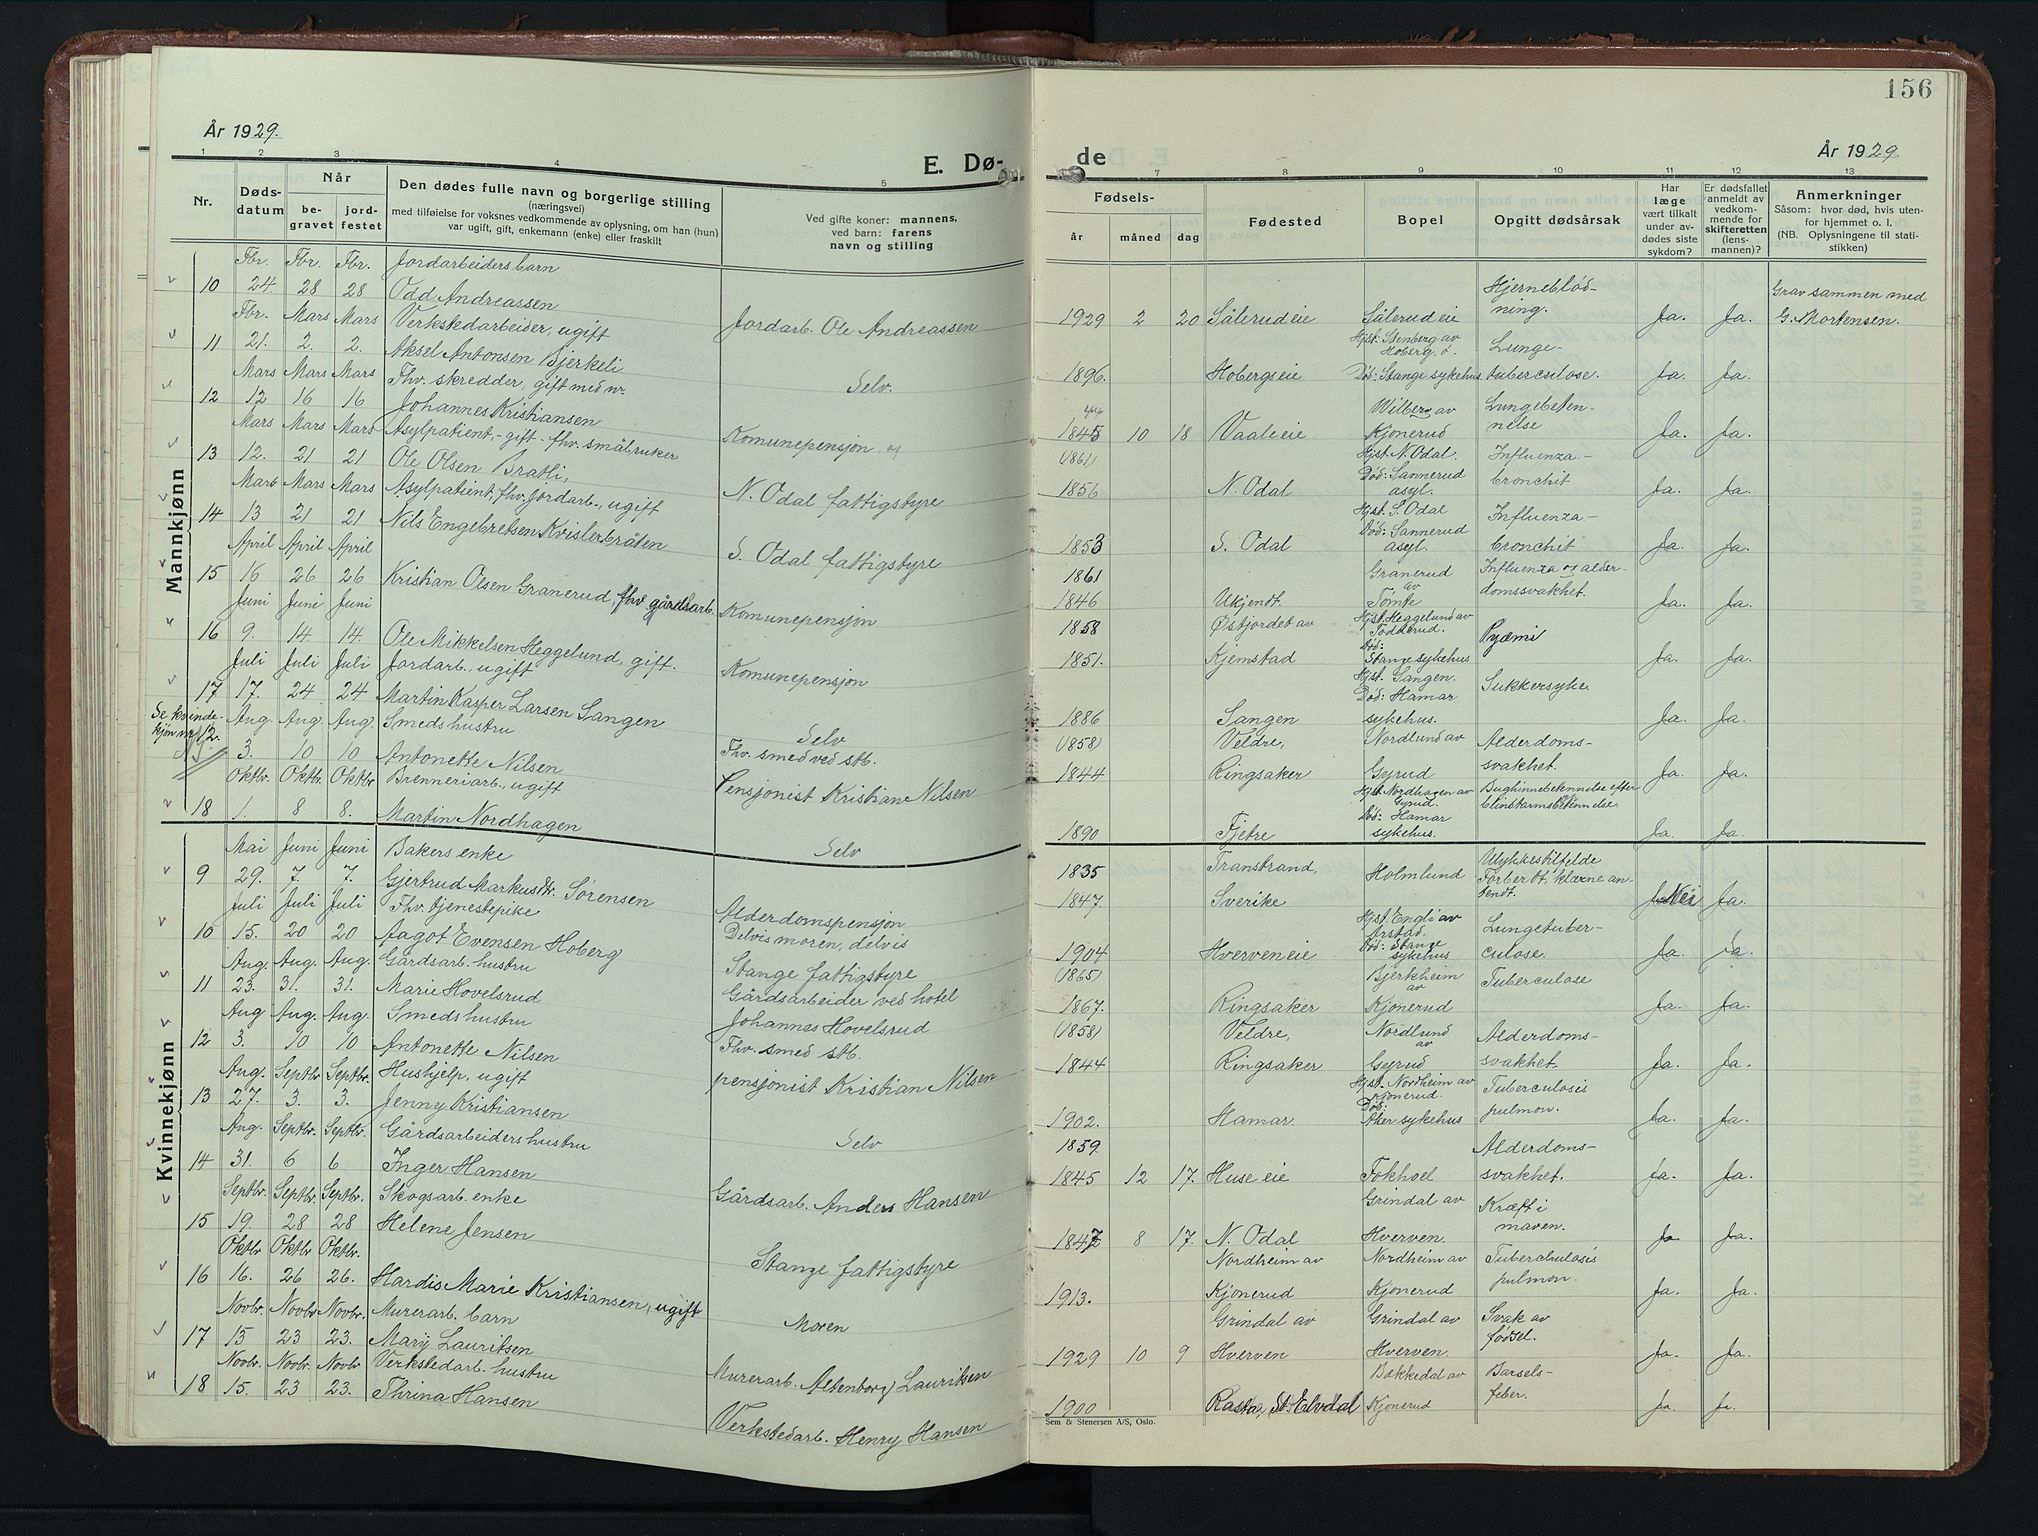 156
År 1929.
E. Dø-
de
År 1929.
1 2 3 4 5 7 8 9 10 11 12 13
Nr.
Døds-
datum
Når
be-
gravet
jord-
festet
Den dødes fulle navn og borgerlige stilling
(næringsvei)
med tilføielse for voksnes vedkommende av oplysning, om han (hun)
var ugift, gift, enkemann (enke) eller fraskilt
Ved gifte koner: mannens,
ved barn: farens
navn og stilling
Fødsels-
år måned dag
Fødested
Bopel
Opgitt dødsårsak
Har
læge
vært tilkalt
under av-
dødes siste
sykdom?
Er dødsfallet
anmeldt av
vedkom-
mende for
skifteretten
(lens-
mannen)?
Anmerkninger
Såsom: hvor død, hvis uten-
for hjemmet o. l.
(NB. Oplysningene til stati-
stikken)
Mannkjønn
Fbr. Fbr. Fbr. Jordarbeiders barn
10 24. 28 28 Odd Andreassen
Jordarb. Ole Andreassen
1929 2 20 Sålerud eie Sålerud eie
Hjerneblød-
ning.
Ja. Ja.
Grav sammen med
G. Mortensen.
Fbr. Mars Mars Verkstedarbeider, ugift
11 21. 2. 2. Aksel Antonsen Bjerkeli
Selv.
1896. Hobergseie
Hjst: Stenberg av
Hoberg ö.
Død: Stange sykehus.
Lunge-
tuberculose.
Ja. Ja.
Mars Mars Mars Fhv. skredder, gift med nr.
12 12 16 16 Johannes Kristiansen
Komunepensjon
44
1845 10 18 Vaalieie
Wilberg av
Kjonerud
Lungebeten-
nelse
Ja. Ja.
Mars Mars Mars Asylpatient, - gift - fhv. småbruker
13 12. 21 21 Ole Olsen Bratli,
N. Odal fattigstyre
(1861)
1856 N. Odal
Hjst. N. Odal.
Død: Sannerud
asyl.
Influenza-
bronchit
Ja. Ja.
Mars Mars Mars Asylpatient, fhv. jordarb., ugift
14 13 21 21 Nils Engebretsen Kvislerbråten
S. Odal fattigstyre
1853 S. Odal
Hjst. S. Odal
Død: Sannerud
asyl.
Influenza-
bronchit
Ja. Ja.
April April April
15 16 26 26 Kristian Olsen Granerud, fhv. gårdsarb.
Komunepensjon
1861
1846 Ukjendt.
Granerud
av
Tomte
Influenza og alder-
domssvakhet.
Ja. Ja.
Juni Juni Juni
16 9. 14. 14. Ole Mikkelsen Heggelund, gift.
Komunepensjon
1858
1851.
Østjordet av
Kjemstad
Hjst. Heggelund av
Todderud.
Død:
Stange sykehus
Pyæmi
Ja. Ja.
Juli Juli Juli Jordarb., ugift
17 17. 24 24 Martin Kasper Larsen Sangen
Selv
1886 Sangen
Hjst. Sangen.
Død: Hamar
sykehus.
Sukkersyke.
Ja. Ja.
Se kvinde-
kjøn nr. 12.
Aug. Aug. Aug. Smeds hustru
3. 10 10 Antonette Nilsen
Fhv. smed ved stb.
Pensjonist Kristian Nilsen
(1858)
1844
Veldre,
Ringsaker
Nordlund av
Gyrud
Alderdoms-
svakhet.
Ja. Ja.
Oktbr. Oktbr. Oktbr. Brenneriarb., ugift
18 1. 8 8. Martin Nordhagen
Selv
1890 Fjetre
Hjst. Nordhagen av
Gyrud.
Død: Hamar
sykehus.
Bughinnebetennelse efter
blinstarmsbetennelse.
Ja. Ja.
Kvinnekjønn
Mai Juni Juni Bakers enke
9 29. 7. 7. Gjertrud Markusdtr. Sørensen
Alderdomspensjon
1835
1847.
Transtrand,
Sverike
Holmlund
Ulykkestilfelde
Forber Ot, klærne an-
tendt.
Nei Ja.
Juli Juli Juli Fhv. tjenestepike
10 15. 20 20 Aagot Evensen Hoberg
Delvis moren, delvis
Stange fattigstyre
1904 Hverven eie
Hjst. Engli av
Arstad.
Død: Stange
sykehus
Lungetuber-
culose.
Ja. Ja.
Aug. Aug. Aug. Gårdsarb. hustru
11 23. 31. 31. Marie Hovelsrud
Gårdsarbeider ved hotel
Johannes Hovelsrud
(1865)
1867. Ringsaker
Bjerkheim
av
Kjonerud
Tuberculose
Ja. Ja.
Aug Aug. Aug. Smeds hustru
12 3. 10 10 Antonette Nilsen
Fhv. smed stb.
pensjonist Kristian Nilsen
(1858)
1844
Veldre,
Ringsaker
Nordlund
av
Gyrud
Alderdoms-
svakhet.
Ja. Ja.
Aug. Septbr Septbr. Hushjelp, ugift
13 27. 3. 3. Jenny Kristiansen
Selv
1902. Hamar.
Hjst. Nordheim av
Kjonerud.
Død:
Aker sykehus
Tuberculosis
pulmon.
Ja. Ja.
Aug. Septbr. Septbr. Gårdsarbeiders hustru
14 31. 6 6 Inger Hansen
Gårdsarb. Anders Hansen
1859.
1845 12 17. Huse eie Fokhoel
Alderdoms-
svakhet.
Ja. Ja.
Septbr. Septbr. Septbr. Skogsarb. enke
15 19. 28 28 Helene Jensen
Stange fattigstyre
1847 8 17. N. Odal
Grindal av
Hverven.
Kræft i
maven.
Ja Ja.
Oktbr Oktbr Oktbr.
16 16. 26 26. Hardis Marie Kristiansen, ugift
Moren
1913.
Nordheim av
Kjonerud
Nordheim av
Kjonerud
Tuberchulosis
pulmon.
Ja. Ja.
Novbr. Novbr Novbr. Murerarb. barn
17 15 23 23. Mary Lauritsen
Murerarb. Altenborg Lauritsen
1929 10 9
Grindal av
Hverven
Grindal av
Hverven.
Svak av
fødsel.
Ja. Ja.
Novbr. Novbr. Novbr Verkstedarb. hustru
18 15. 23 23. Thrina Hansen
Verkstedarb. Henry Hansen
1900 Rasta, St. Elvdal
Bakkedal av
Kjonerud
Barsels-
feber.
Ja. Ja.
Sem & Stenersen A/S, Oslo.